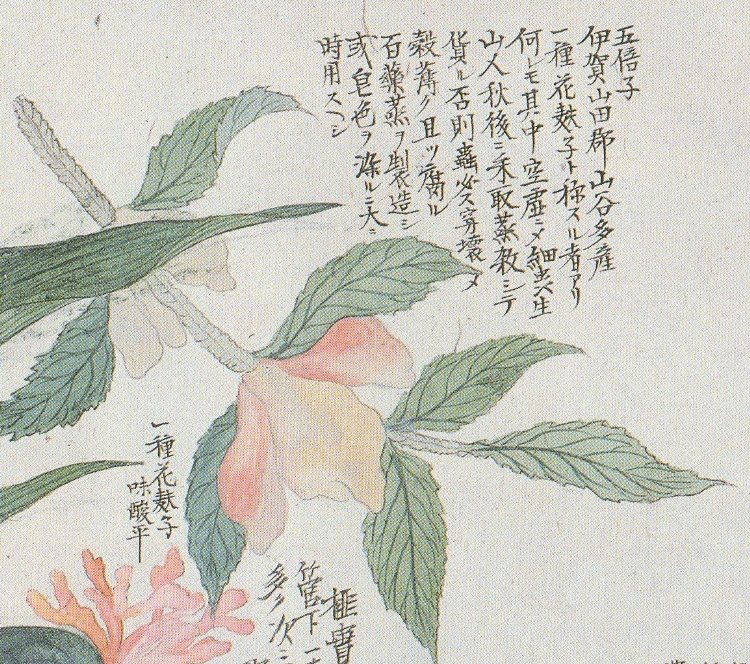 五倍子
伊賀山田郡山谷多産
一種花麩子ト称スル者アリ
何レモ其中空虚ニメ細虫生
山人秋後ニ禾取蒸殺シテ
貨ル否則蟲必ス穿壊メ
殻薄ク且ツ腐ル
石藥蒸ヲ製造シ
或皂色ヲ染ルニ大ニ
時用スヘシ
一種花麩子
味酸平
榧實
管下一
多ク次ニ